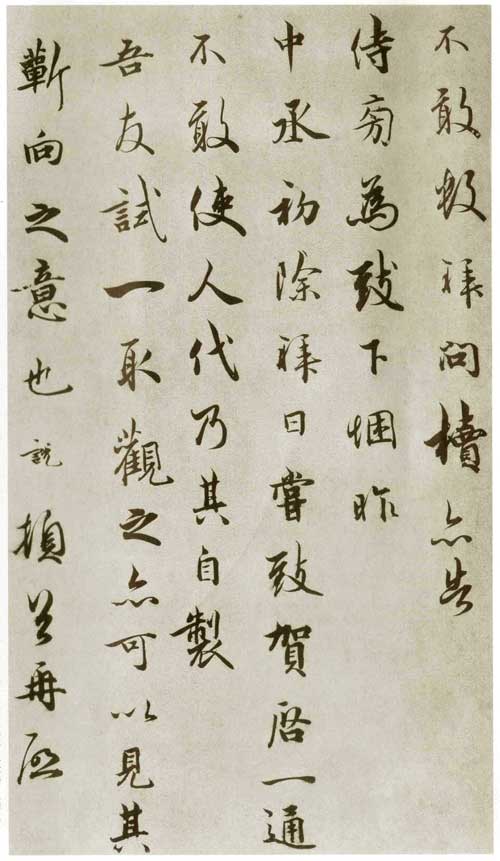 不敢輙拜問牘亦告
侍旁為致下悃昨
中丞初除拜日嘗致賀啓一通
不敢使人代乃其自製
吾友試一取觀之亦可以見其
蘄向之意也說頓首再啟